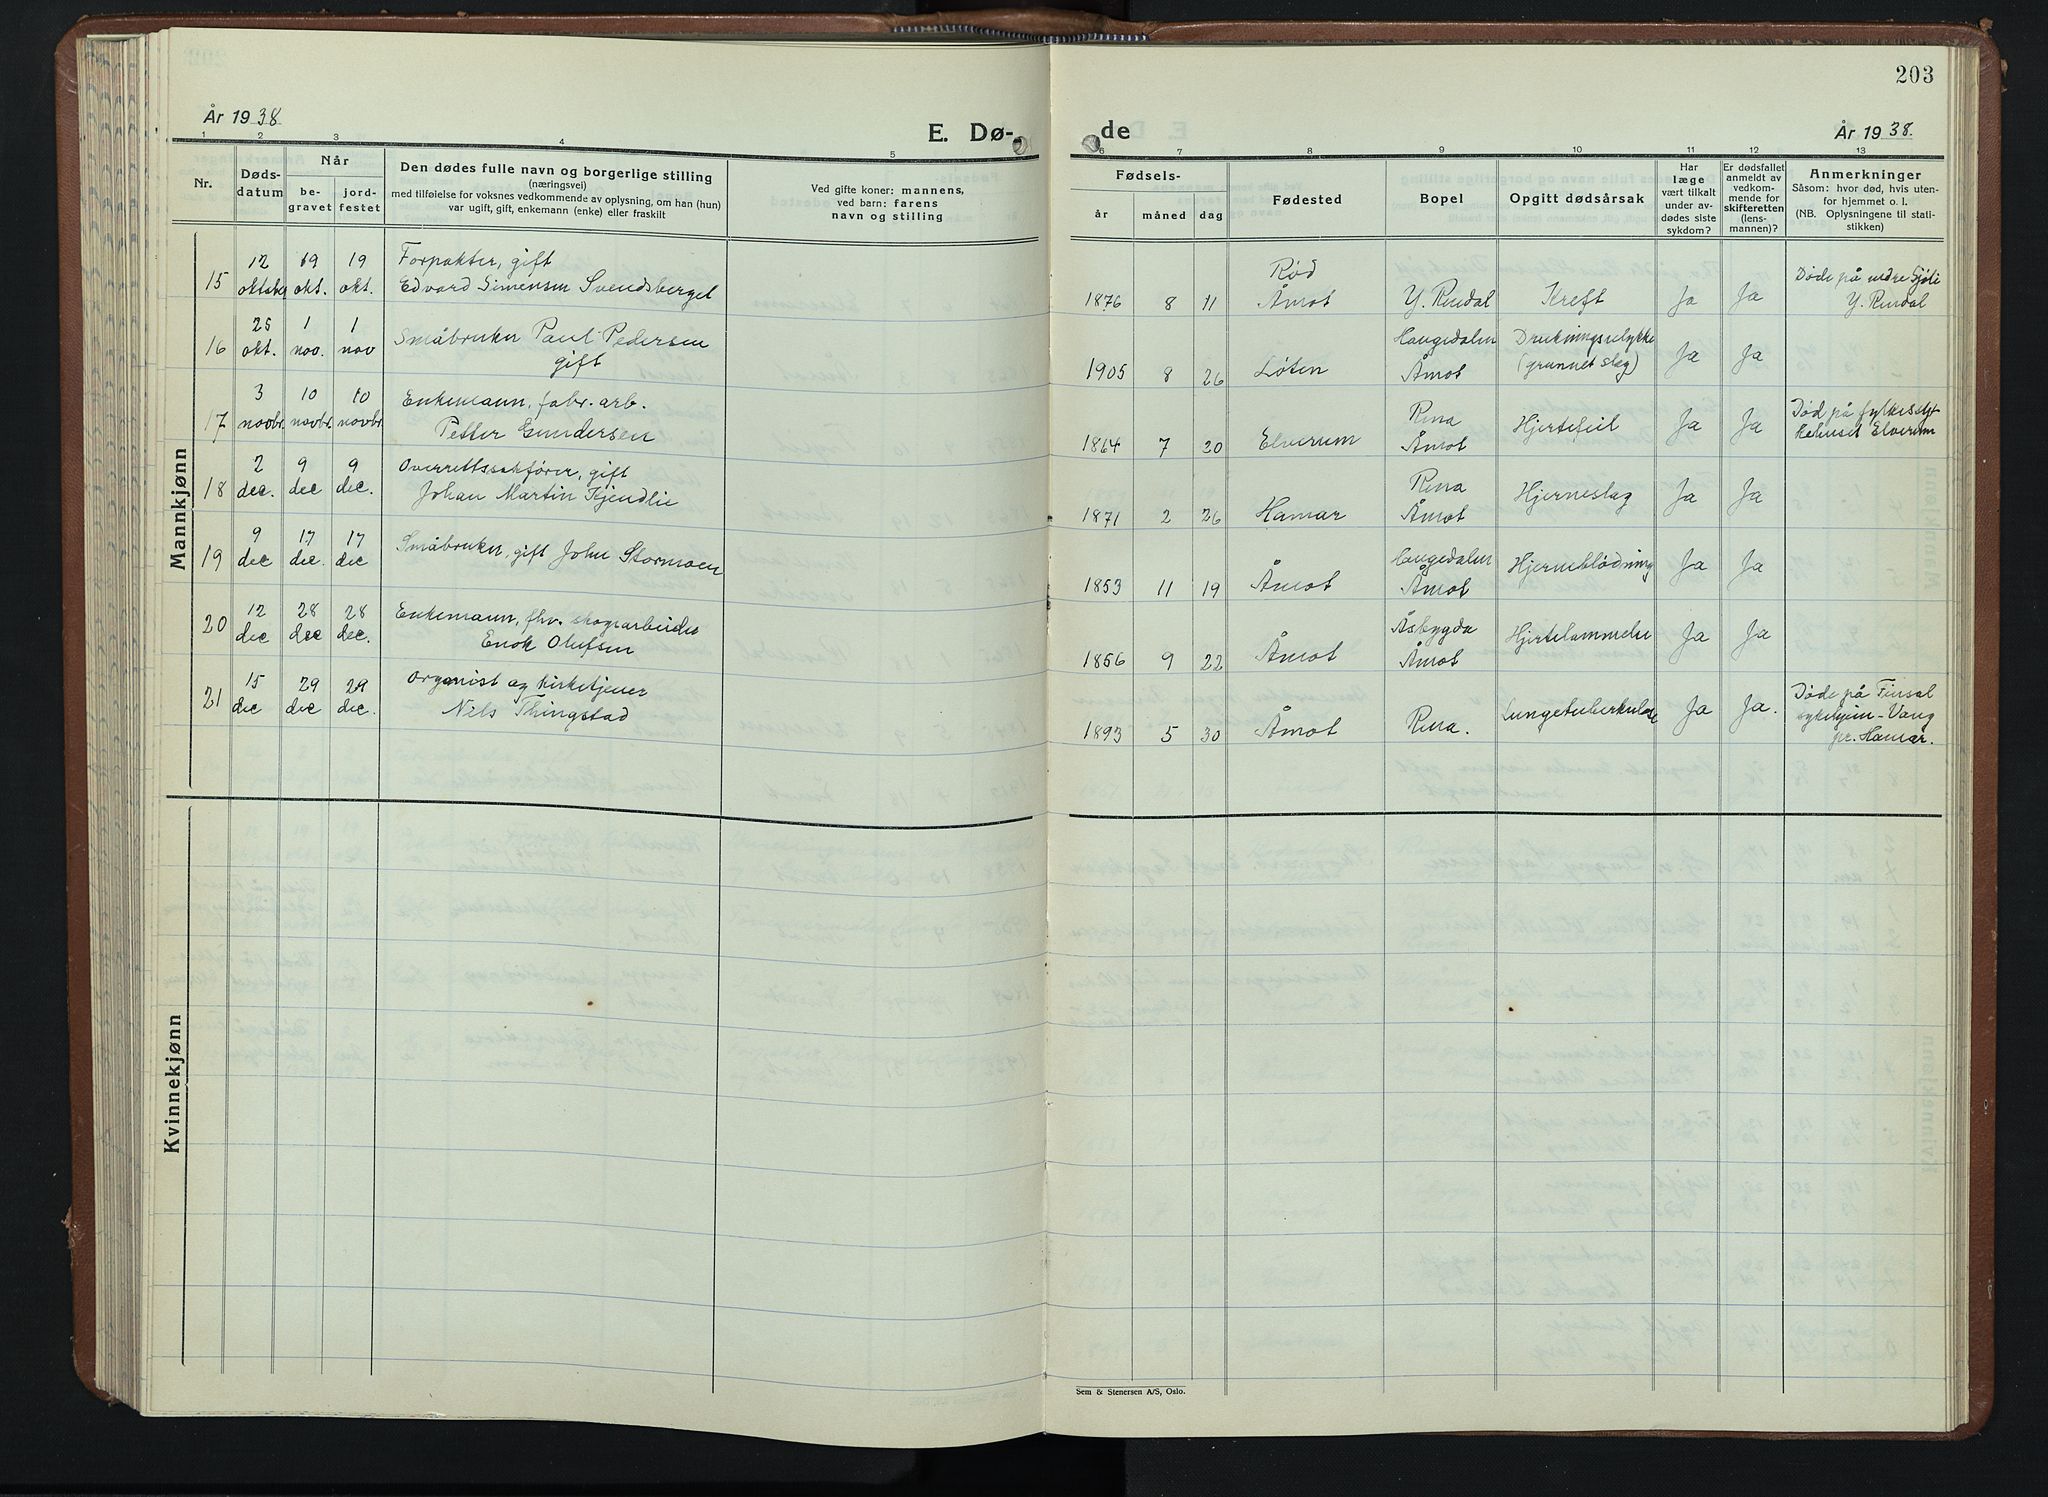 203
År 1938
E. Dø-
de
År 1938.
1 2 3 4 5 6 7 8 9 10 11 12 13
Nr.
Døds-
datum
Når
be-
gravet
jord-
festet
Den dødes fulle navn og borgerlige stilling
(næringsvei)
med tilføielse for voksnes vedkommende av oplysning, om han (hun)
var ugift, gift, enkemann (enke) eller fraskilt
Ved gifte koner: mannens,
ved barn: farens
navn og stilling
Fødsels-
år
måned
dag
Fødested
Bopel
Opgitt dødsårsak
Har
læge
vært tilkalt
under av-
dødes siste
sykdom?
Er dødsfallet
anmeldt av
vedkom-
mende for
skifteretten
(lens-
mannen)?
Anmerkninger
Såsom: hvor død, hvis uten-
for hjemmet o. l.
(NB. Oplysningene til stati-
stikken)
Mannkjønn
15 12 oktober 19 okt. 19 okt.
Forpakter, gift
Edvard Simensen Svendsberget
1876 8 11
Rød
Åmot
Y. Rendal
Kreft
Ja Ja
Døde på
Y. Rendal
16 25 okt. 1 nov. 1 nov
Småbruker Paul Pedersen
gift
1905 8 26 Løten
Haugedalen
Åmot
Drukningsulykke
(grunnet slag)
Ja Ja
17 3 novbr. 10 novbr. 10 novbr.
Enkemann, fabr. arb.
Petter Gundersen
1864 7 30 Elverum
Rena
Åmot
Hjertefeil
Ja Ja
Død på fylkessy-
kehuset Elverum
18 2 dec. 9 dec 9 dec.
Overrettssakfører, gift
Johan Martin Kjendlie
1871 2 26 Hamar
Rena
Åmot
Hjerneslag
Ja Ja
19 9 dec 17 dec. 17 dec
Småbruker, gift John Stormoen
1853 11 19 Åmot
Haugedalen
Åmot
Hjerneblødning
Ja Ja
20 12 dec 28 dec 28 dec.
Enkemann, fhv. skogsarbeider
Enok Olufsen
1856 9 22 Åmot
Åsbygda
Åmot
Hjertelammelse
Ja Ja
21 15 dec 29 dec 29 dec.
Organist og kirketjener
Nils Thingstad
1893 5 30 Åmot
Rena.
Lungetuberkulose
Ja Ja.
Døde på Finsal
sykehjem - Vang
pr. Hamar.
Kvinnekjønn
Sem & Stenersen A/S, Oslo.